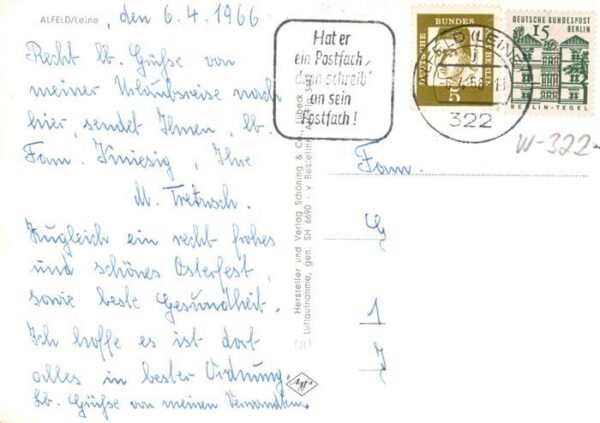 ALFELD/Leine , den 6.4.1966
Recht lb. Grüße von
meiner Urlaubsreise nach
hier, sendet Ihnen, lb.
Fam. Ihre
M.
Zugleich ein recht frohes
und schönes Osterfest,
sowie beste Gesundheit.
Ich hoffe es ist dort
alles in bester Ordnung.
Lb. Grüße von meinen Verwandten.
Hersteller und Verlag Schöning & Co., Lübeck
Luftaufnahme, gen. SH 6690 - v
Bestellnr.
Hat er
ein Postfach,
dann schreib'
an sein
Postfach!
DEUTSCHE BUNDESPOST BERLIN
5
DEUTSCHE BUNDESPOST
BERLIN
15
BERLIN-TEGEL
ALFELD (LEINE)
322
W-322-
Fam.
G
1
J